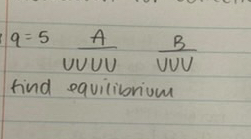 q=5 A B
UUUU UUU
find equilibrium